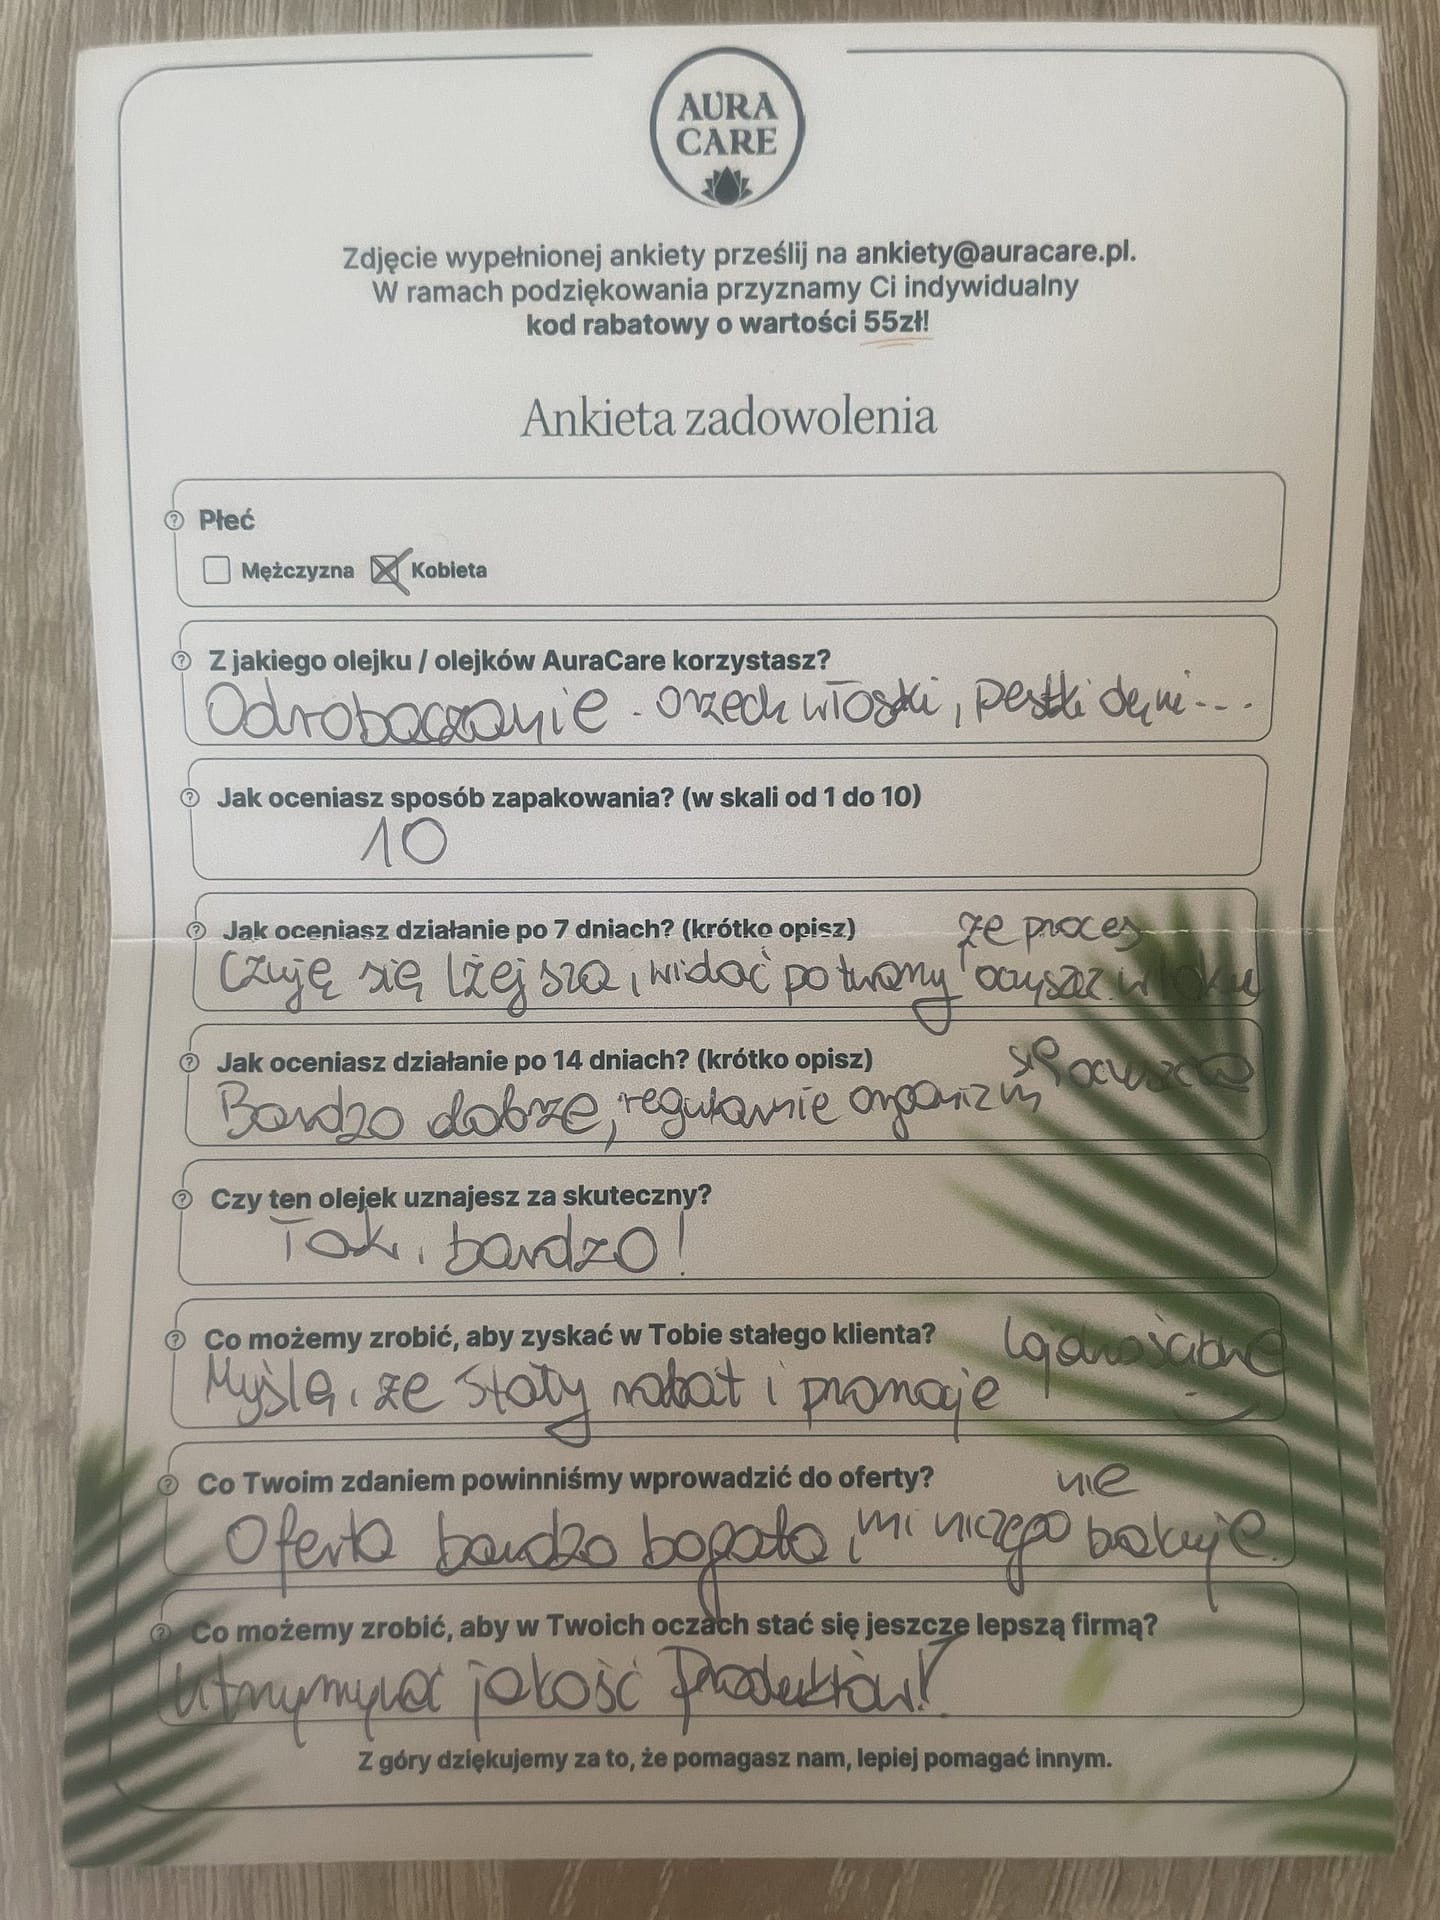 AURA
CARE
Zdjęcie wypełnionej ankiety prześlij na ankiety@auracare.pl.
W ramach podziękowania przyznamy Ci indywidualny
kod rabatowy o wartości 55zł!
Ankieta zadowolenia
Płeć
Mężczyzna Kobieta
Z jakiego olejku / olejków AuraCare korzystasz?
Odrobaczanie - orzech włoski, pestki dyni...
Jak oceniasz sposób zapakowania? (w skali od 1 do 10)
10
Jak oceniasz działanie po 7 dniach? (krótko opisz)
że proces
Czuję się lżejsza, widać po twarzy oczyszcz. w toku
Jak oceniasz działanie po 14 dniach? (krótko opisz)
się oczyszcza
Bardzo dobrze, regularnie organizm
Czy ten olejek uznajesz za skuteczny?
Tak, bardzo!
Co możemy zrobić, aby zyskać w Tobie stałego klienta?
lojalnościowe
Myślę, że stały rabat i promocje
Co Twoim zdaniem powinniśmy wprowadzić do oferty?
nie
Oferta bardzo bogata, mi niczego brakuje.
Co możemy zrobić, aby w Twoich oczach stać się jeszcze lepszą firmą?
Utrzymywać jakość Produktów!
Z góry dziękujemy za to, że pomagasz nam, lepiej pomagać innym.